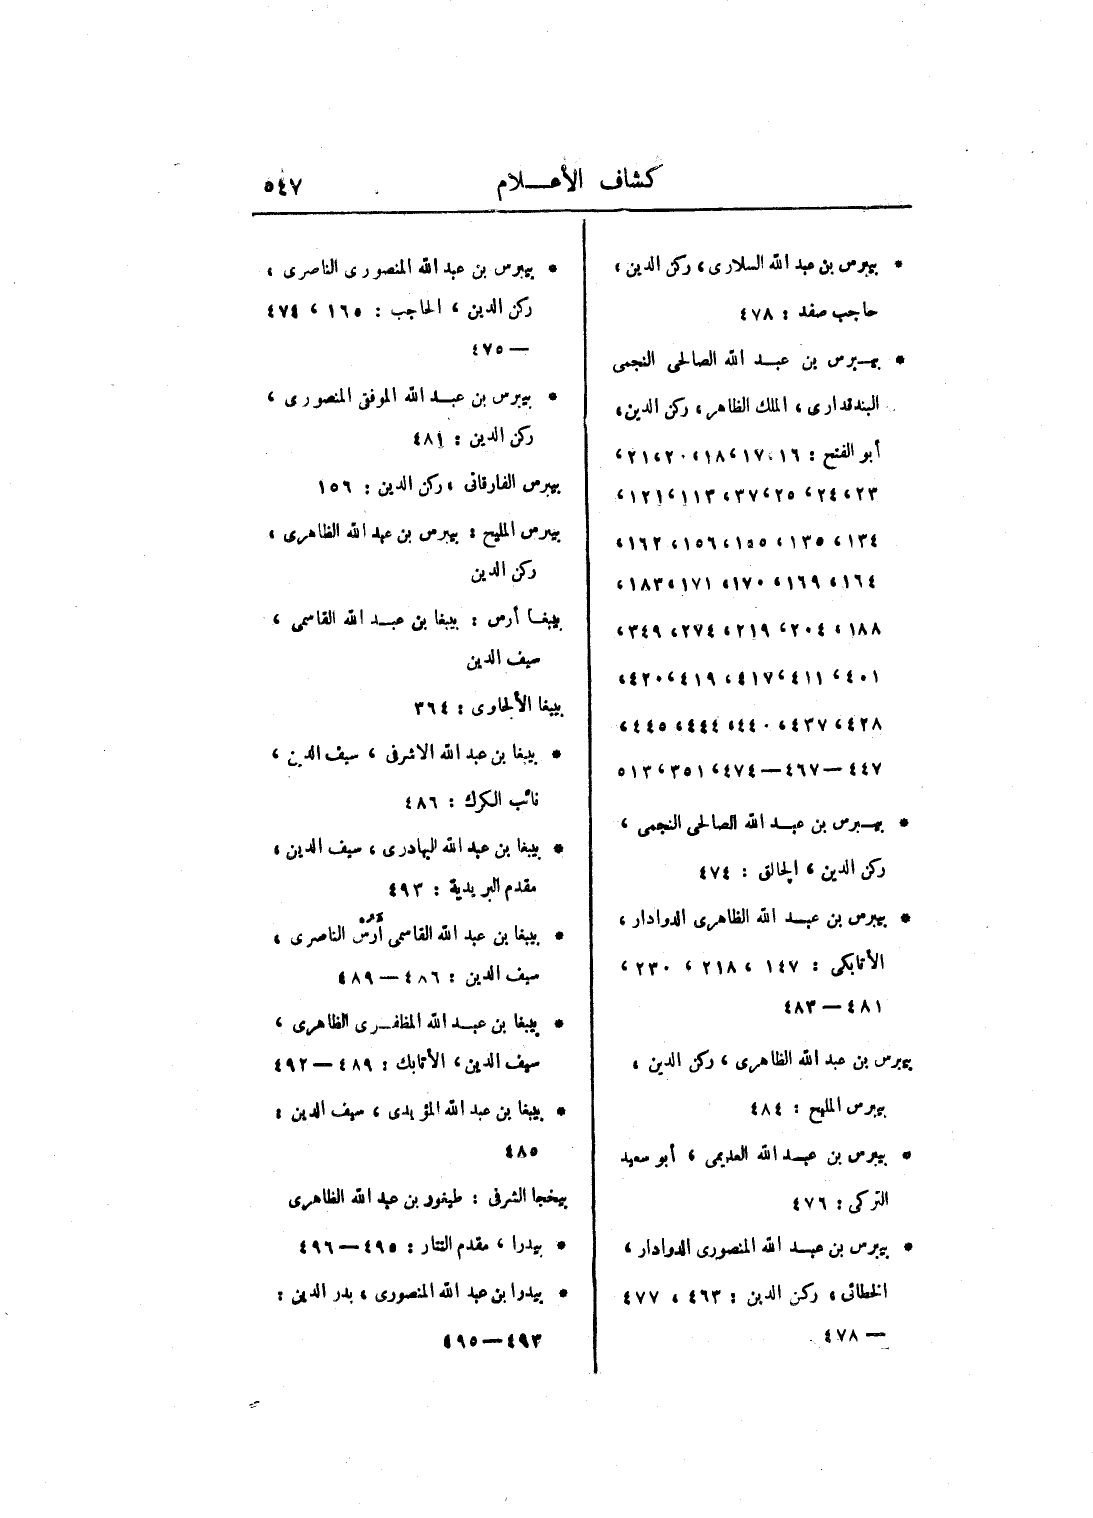 كشاف الأعـــلام
٥٤٧
* بيبرس بن عبد الله السلارى، ركن الدين،
حاجب صفد : ٤٧٨
* بيـبرس بن عبـد الله الصالحى النجمى
البندقدارى، الملك الظاهر، ركن الدين،
أبو الفتح : ١٦، ١٧، ١٨، ٢٠، ٢١،
٢٣، ٢٤، ٢٥، ٣٧، ١١٣، ١٢١،
١٣٤، ١٣٥، ١٥٥، ١٥٦، ١٦٢،
١٦٤، ١٦٩، ١٧٠، ١٧١، ١٨٣،
١٨٨، ٢٠٤، ٢١٩، ٢٧٤، ٣٤٩،
٤٠١، ٤١١، ٤١٧، ٤١٩، ٤٢٠،
٤٢٨، ٤٣٧، ٤٤٠، ٤٤٤، ٤٤٥،
٤٤٧—٤٦٧—٤٧٤، ٣٥١، ٥١٣
* بيـبرس بن عبـد الله الصالحى النجمى،
ركن الدين، الجالق : ٤٧٤
* بيبرس بن عبـد الله الظاهرى الدوادار،
الأتابكى : ١٤٧، ٢١٨، ٢٣٠،
٤٨١—٤٨٣
بيبرس بن عبد الله الظاهرى، ركن الدين،
بيبرس المليح : ٤٨٤
* بيبرس بن عبـد الله العديمى، أبو سعيد
التركى : ٤٧٦
* بيبرس بن عبـد الله المنصورى الدوادار،
الخطائى، ركن الدين : ٤٦٣، ٤٧٧
— ٤٧٨
* بيبرس بن عبد الله المنصورى الناصرى،
ركن الدين، الحاجب : ١٦٥، ٤٧٤
— ٤٧٥
* بيبرس بن عبـد الله الموفقى المنصورى،
ركن الدين : ٤٨١
بيبرس الفارقانى، ركن الدين : ١٥٦
بيبرس المليح : بيبرس بن عبد الله الظاهرى،
ركن الدين
بيبغـا أرس : بيبغا بن عبـد الله القاسمى،
سيف الدين
بيبغا الألجاوى : ٣٦٤
* بيبغا بن عبد الله الاشرفى، سيف الدين،
نائب الكرك : ٤٨٦
* بيبغا بن عبد الله البهادرى، سيف الدين،
مقدم البريدية : ٤٩٣
* بيبغا بن عبد الله القاسمى أرس الناصرى،
سيف الدين : ٤٨٦—٤٨٩
* بيبغا بن عبـد الله المظفـرى الظاهرى،
سيف الدين، الأتابك : ٤٨٩—٤٩٢
* بيبغا بن عبد الله المؤيدى، سيف الدين :
٤٨٥
بيخجا الشرفى : طيفور بن عبد الله الظاهرى
* بيدرا، مقدم التتار : ٤٩٥—٤٩٦
* بيدرا بن عبد الله المنصورى، بدر الدين :
٤٩٣—٤٩٥